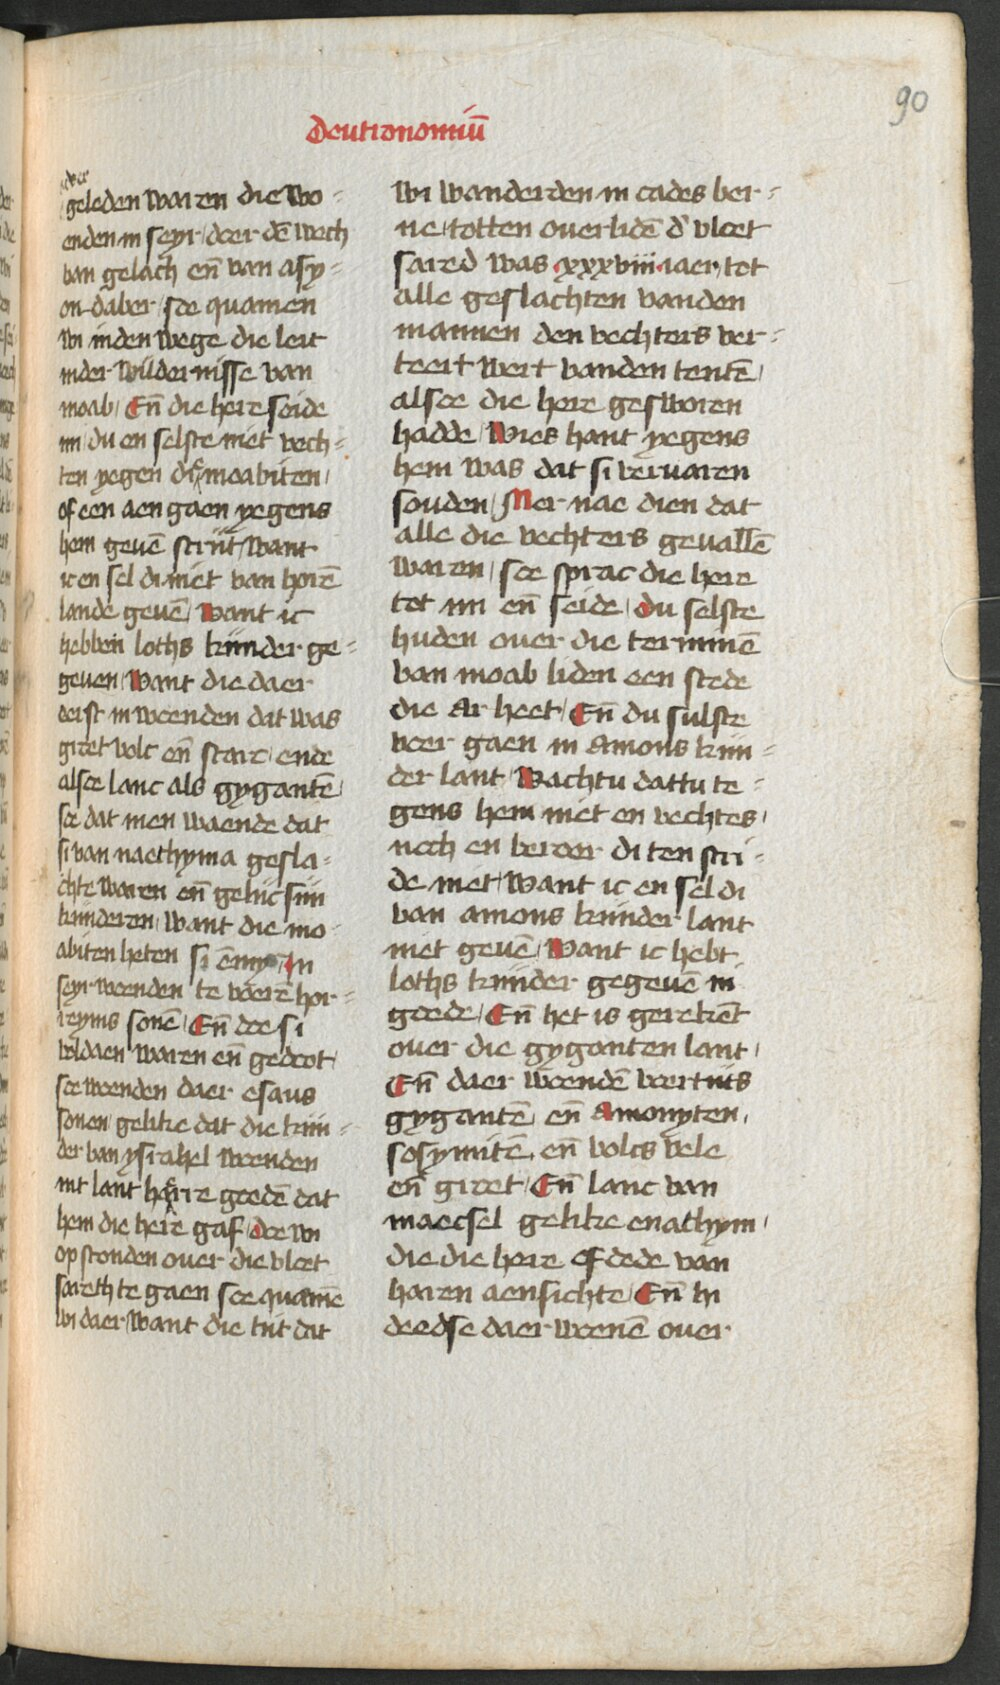 90
Deutronomiū
over
geleden waren die wo-
enden in seyr / doer dē wech
van gelach en̄ van asy-
on-daber / soe quamen
wi inden wege die leit
inder wildernisse van
moab / En̄ die here seide
mi / du en selste niet vech-
ten yegen die moabiten /
of een aen gaen yegens
hem geuē strijt / want
ic en sel di niet van horē
lande geuē / want ic
hebben loths kinder ge-
geuen / Want die daer
eerst in woenden dat was
groet volc en̄ starc / ende
alsoe lanc als gygantē /
soe dat men waende dat
si van naethyma gesla-
chte waren en̄ gelijc sijn
kinderen / want die mo-
abiten heten si ēmym / In
seyr woenden te voerē hor-
reyms sonē / En̄ doe si
verdaen waren en̄ gedoot /
soe woenden daer esaus
sonen / gelike dat die kin-
der van ysrahel woenden
int lant harre goedē dat
hem die here gaf / doe wi
op stonden ouer die vloet
sareth te gaen soe quamē
wi daer / Want die tijt dat
wi wanderden in cades ber-
ne / totten ouerlidē d' vloet
sared was .xxxviii. iaer / tot
alle geslachten vanden
mannen den vechters ver-
teert wert vanden tentē /
alsoe die here gesworen
hadde / Wies hant yegens
hem was dat si veruaren
souden / Mer nae dien dat
alle die vechters geuallē
waren / soe sprac die here
tot mi en̄ seide / du selste
huden ouer die terminē
van moab liden een stede
die Ar heet / En̄ du sulste
voer gaen in Amons kin-
der lant / Wachtu dattu te-
gens hem niet en vechtes /
noch en beroer di ten stri-
de niet / Want ic en sel di
van amons kinder lant
niet geuē / Want ic hebt
loths kinder gegeuē in
goede / En̄ het is gerekēt
ouer die gyganten lant /
En̄ daer woendē voertijts
gygantē en̄ Amonyten /
sosymitē / en̄ volcs vele
en̄ groet / En̄ lanc van
maecsel gelike enathym /
die die here of dede van
haren aensichte / En̄ hi
deedse daer woenē ouer